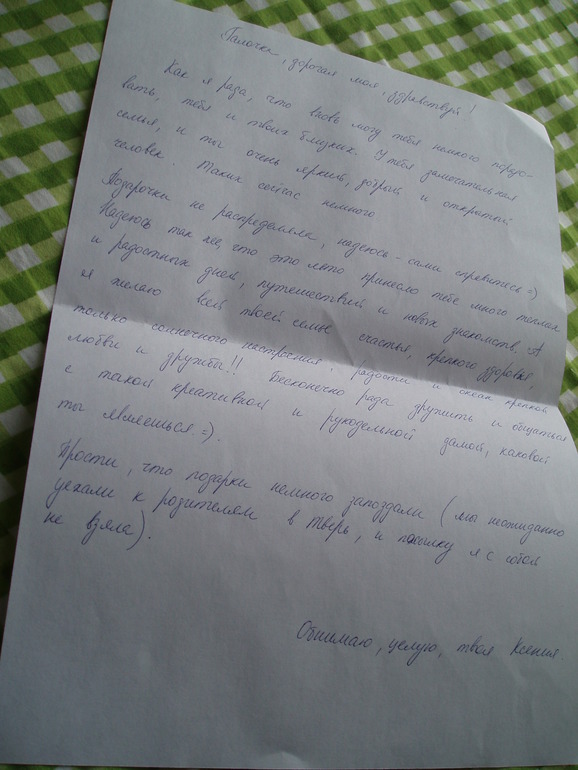 Галочка, дорогая моя, здравствуй!
Как я рада, что вновь могу тебя немного порадо-
вать, тебя и твоих близких. У тебя замечательная
семья, и ты очень яркий, добрый и открытый
человек. Таких сейчас немного
Подарочки не распределяла, надеюсь - сами справитесь =)
Надеюсь так же, что это лето принесло тебе много теплых
и радостных дней, путешествий и новых знакомств. А
я желаю всей твоей семье счастья, крепкого здоровья,
только солнечного настроения, радости и океан крепкой
любви и дружбы!! Бесконечно рада дружить и общаться
с такой креативной и рукодельной дамой, каковой
ты являешься =).
Прости, что подарки немного запоздали (мы неожиданно
уехали к родителям в Тверь, и посылку я с собой
не взяла).
Обнимаю, целую, твоя Ксения.